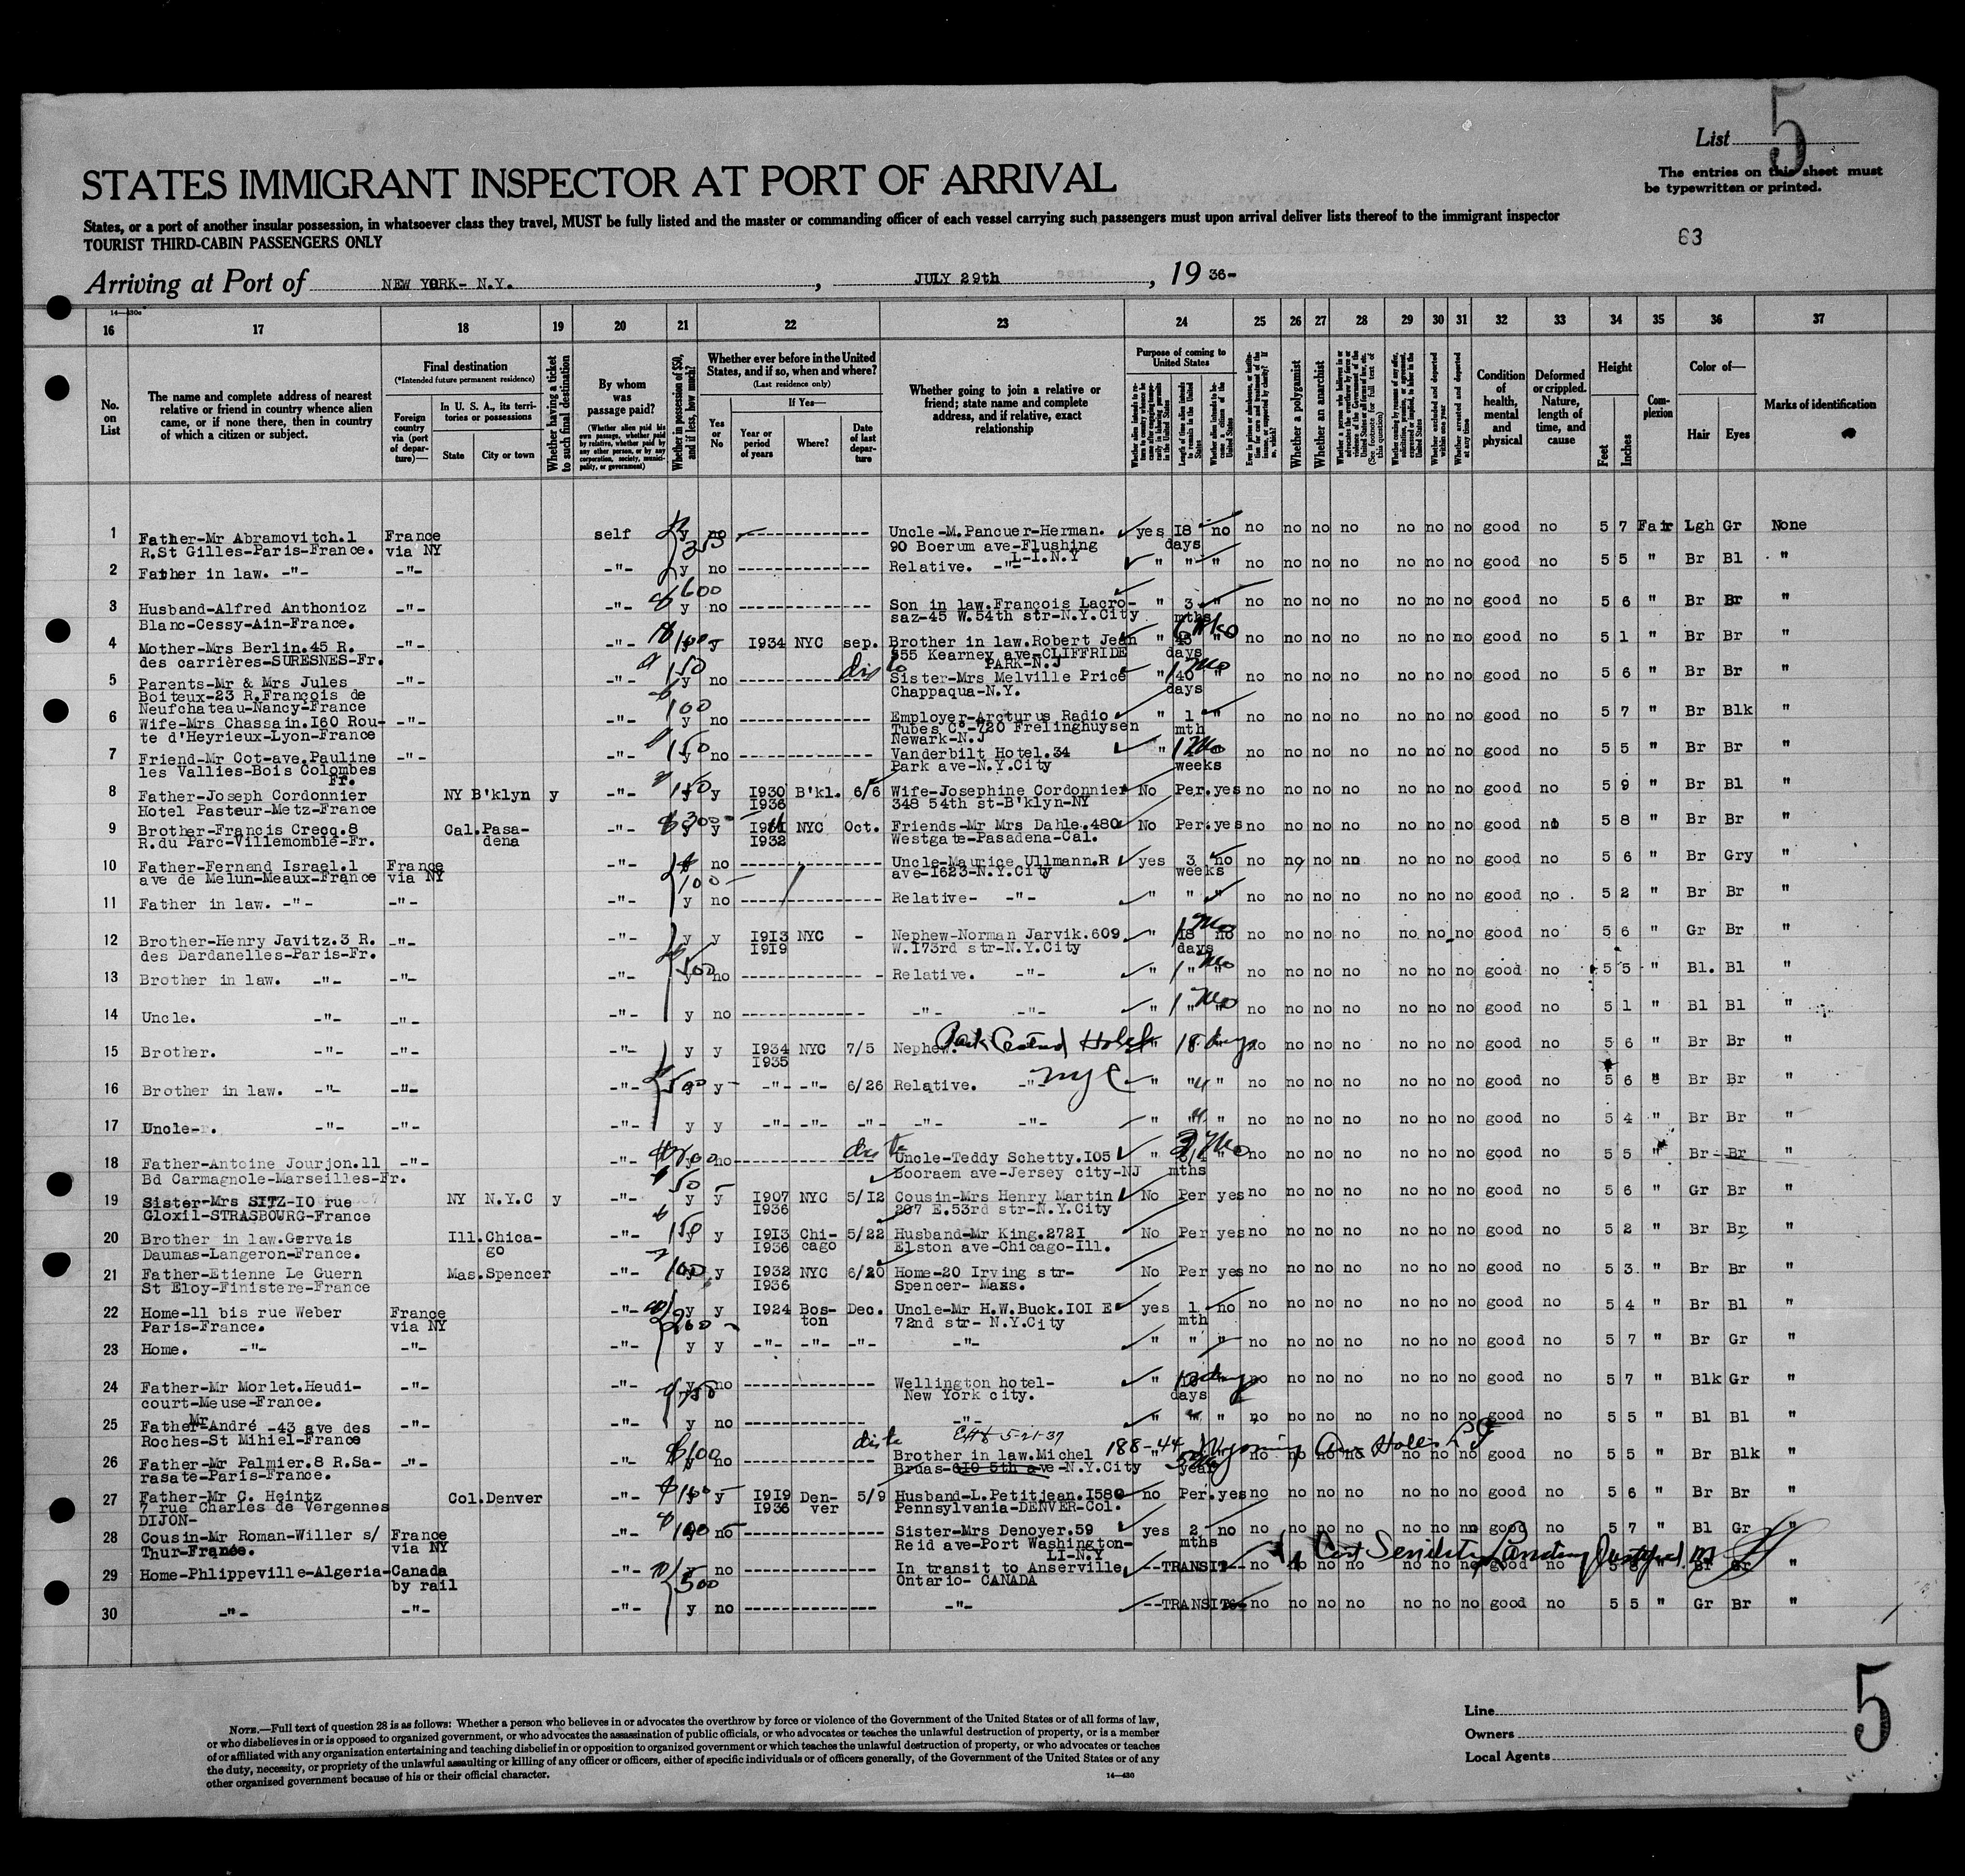 List 5
The entries on this sheet must
be typewritten or printed.
STATES IMMIGRANT INSPECTOR AT PORT OF ARRIVAL
States, or a port of another insular possession, in whatsoever class they travel, MUST be fully listed and the master or commanding officer of each vessel carrying such passengers must upon arrival deliver lists thereof to the immigrant inspector
TOURIST THIRD-CABIN PASSENGERS ONLY
63
Arriving at Port of NEW YORK- N.Y. , JULY 29th , 19 36-
16 17 18 19 20 21 22 23 24 25 26 27 28 29 30 31 32 33 34 35 36 37
No. on List
The name and complete address of nearest relative or friend in country whence alien came, or if none there, then in country of which a citizen or subject.
Final destination
(*Intended future permanent residence)
Foreign country via (port of departure)—
In U. S. A., its territories or possessions
State City or town
Whether having a ticket to such final destination
By whom was passage paid?
(Whether alien paid his own passage, whether paid by relative, whether paid by any other person, or by any corporation, society, municipality, or government)
Whether in possession of $50, and if less, how much?
Whether ever before in the United States, and if so, when and where?
(Last residence only)
Yes or No
If Yes—
Year or period of years
Where?
Date of last departure
Whether going to join a relative or friend; state name and complete address, and if relative, exact relationship
Purpose of coming to United States
Whether a polygamist
Whether an anarchist
Condition of health, mental and physical
Deformed or crippled. Nature, length of time, and cause
Height
Feet Inches
Complexion
Color of—
Hair Eyes
Marks of identification
1 Father-Mr Abramovitch.1 France self y no ------------- Uncle-M.Pancuer-Herman. yes I8 no no no no no no no no good no 5 7 Fair Lgh Gr None
R.St Gilles-Paris-France. via NY 353 90 Boerum ave-Flushing days
L-I.N.Y
2 Father in law. -"- -"- -"- y no ------------- Relative. -"- " " " no no no no no no no good no 5 5 " Br Bl "
600
3 Husband-Alfred Anthonioz -"- -"- y no ------------- Son in law.François Lacro- " 3 " no no no no no no no good no 5 6 " Br Br "
Blanc-Cessy-Ain-France. saz-45 W.54th str-N.Y.City mths
4 Mother-Mrs Berlin.45 R. -"- -"- 100 y I934 NYC sep. Brother in law.Robert Jean " 45 " no no no no no no no good no 5 1 " Br Br "
des carrières-SURESNES-Fr. 555 Kearney ave-CLIFFRIDE days
PARK-N.J
5 Parents-Mr & Mrs Jules -"- -"- 150 y no ------------- Sister-Mrs Melville Price " 40 " 1 Mo no no no no no no no good no 5 6 " Br Br "
Boiteux-23 R.François de Chappaqua-N.Y. days
Neufchateau-Nancy-France
6 Wife-Mrs Chassain.I60 Rou- -"- -"- 100 y no ------------- Employer-Arcturus Radio " 1 " no no no no no no no good no 5 7 " Br Blk "
te d'Heyrieux-Lyon-France Tubes Co-720 Frelinghuysen mth
Newark-N.J
7 Friend-Mr Cot-ave.Pauline -"- -"- 150 y no ------------- Vanderbilt Hotel.34 " 1 Mo no no no no no no no good no 5 5 " Br Br "
les Vallies-Bois Colombes Park ave-N.Y.City weeks
Fr.
8 Father-Joseph Cordonnier NY B'klyn y -"- 150 y I930 B'kl. 6/6 Wife-Josephine Cordonnier No Per. yes no no no no no no no good no 5 9 " Br Bl "
Hotel Pasteur-Metz-France I936 348 54th st-B'klyn-NY
9 Brother-Francis Crecq.8 Cal. Pasa- -"- $300- y y I931 NYC Oct. Friends-Mr Mrs Dahle.480 No Per. yes no no no no no no no good no 5 8 " Br Br "
R.du Parc-Villemomble-Fr. dena I932 Westgate-Pasadena-Cal.
10 Father-Fernand Israel.1 France -"- no ------------- Uncle-Maurice Ullmann.R yes 3 no no no no no no no no good no 5 6 " Br Gry "
ave de Melun-Meaux-France via NY 100- ave-I623-N.Y.City weeks
11 Father in law. -"- -"- -"- y no ------------- Relative- -"- " " " no no no no no no no good no. 5 2 " Br Br "
12 Brother-Henry Javitz.3 R. -"- -"- y y I913 NYC - Nephew-Norman Jarvik.609 " I8 no 1 Mo no no no no no no no good no 5 6 " Gr Br "
des Dardanelles-Paris-Fr. I919 W.I73rd str-N.Y.City days
13 Brother in law. -"- -"- -"- 500 y no ------------- Relative. -"- " " " 1 Mo no no no no no no no good no 5 5 " Bl. Bl "
14 Uncle. -"- -"- -"- y no ------------- -"- -"- " " " 1 Mo no no no no no no no good no 5 1 " Bl Bl "
15 Brother. -"- -"- -"- y y I934 NYC 7/5 Nephew. Park Central Hotel " 18 days no no no no no no no good no 5 6 " Br Br "
I935
16 Brother in law. -"- -"- -"- 500 y -"- -"- 6/26 Relative. -"- NYC " " " no no no no no no no good no 5 6 " Br Br "
17 Uncle-. -"- -"- -"- y y -"- -"- -"- -"- -"- " " " no no no no no no no good no 5 4 " Br Br "
18 Father-Antoine Jourjon.11 -"- -"- no ------------- Uncle-Teddy Schetty.I05 " 3/4 " no no no no no no no good no 5 5 " Br Br "
Bd Carmagnole-Marseilles-Fr. Booraem ave-Jersey city-NJ mths
19 Sister-Mrs SITZ-IO rue NY N.Y.C y -"- 50 y y I907 NYC 5/I2 Cousin-Mrs Henry Martin No Per yes no no no no no no no good no 5 6 " Gr Br "
Gloxil-STRASBOURG-France I936 207 E.53rd str-N.Y.City
20 Brother in law.Gervais Ill. Chica- -"- 150 y I913 Chi- 5/22 Husband-Mr King.272I No Per yes no no no no no no no good no 5 2 " Br Br "
Daumas-Langeron-France. go I936 cago Elston ave-Chicago-Ill.
21 Father-Etienne Le Guern Mas. Spencer -"- 100 y I932 NYC 6/20 Home-20 Irving str- No Per yes no no no no no no no good no 5 3. " Br Br "
St Eloy-Finistere-France I936 Spencer- Mass.
22 Home-11 bis rue Weber France -"- y y I924 Bos- Dec. Uncle-Mr H.W.Buck.IOI E yes 1 no no no no no no no no good no 5 4 " Br Bl "
Paris-France. via NY 200- ton 72nd str- N.Y.City mth
23 Home. -"- -"- -"- y y -"- -"- -"- -"- " " " no no no no no no no good no 5 7 " Br Gr "
24 Father-Mr Morlet.Heudi- -"- -"- no ------------- Wellington hotel- " no no no no no no no good no 5 7 " Blk Gr "
court-Meuse-France. New York city. days
25 Father Mr André -43 ave des -"- -"- y no ------------- -"- " " " no no no no no no no good no 5 5 " Bl Bl "
Roches-St Mihiel-France 5-21-37
26 Father-Mr Palmier.8 R.Sa- -"- -"- $100 no ------------- Brother in law.Michel 188-44 Wyoming Ave Hollis LI no no no no no no no good no 5 5 " Br Blk "
rasate-Paris-France. Bruas-6I0 5th ave-N.Y.City year
27 Father-Mr C. Heintz Col. Denver -"- y I919 Den- 5/9 Husband-L.Petitjean.I580 no Per. yes no no no no no no no good no 5 6 " Br Br "
7 rue Charles de Vergennes I936 ver Pennsylvania-DENVER-Col.
DIJON-
28 Cousin-Mr Roman-Willer s/ France -"- 100 no ------------- Sister-Mrs Denoyer.59 yes 2 no no no no no no no no good no 5 7 " Bl Gr "
Thur-France. via NY Reid ave-Port Washington- mths
LI-N.Y
29 Home-Phlippeville-Algeria- Canada -"- y no ------------- In transit to Anserville --TRANSIT-- no no no no no no no good no " Gr "
by rail 500 Ontario- CANADA
30 -"- -"- -"- y no ------------- -"- --TRANSIT-- no no no no no no no good no 5 5 " Gr Br "
NOTE.—Full text of question 28 is as follows: Whether a person who believes in or advocates the overthrow by force or violence of the Government of the United States or of all forms of law,
or who disbelieves in or is opposed to organized government, or who advocates the assassination of public officials, or who advocates or teaches the unlawful destruction of property, or is a member
of or affiliated with any organization entertaining and teaching disbelief in or opposition to organized government or which teaches the unlawful destruction of property, or who advocates or teaches
the duty, necessity, or propriety of the unlawful assaulting or killing of any officer or officers, either of specific individuals or of officers generally, of the Government of the United States or of any
other organized government because of his or their official character.
14—430
Line
Owners
Local Agents
5